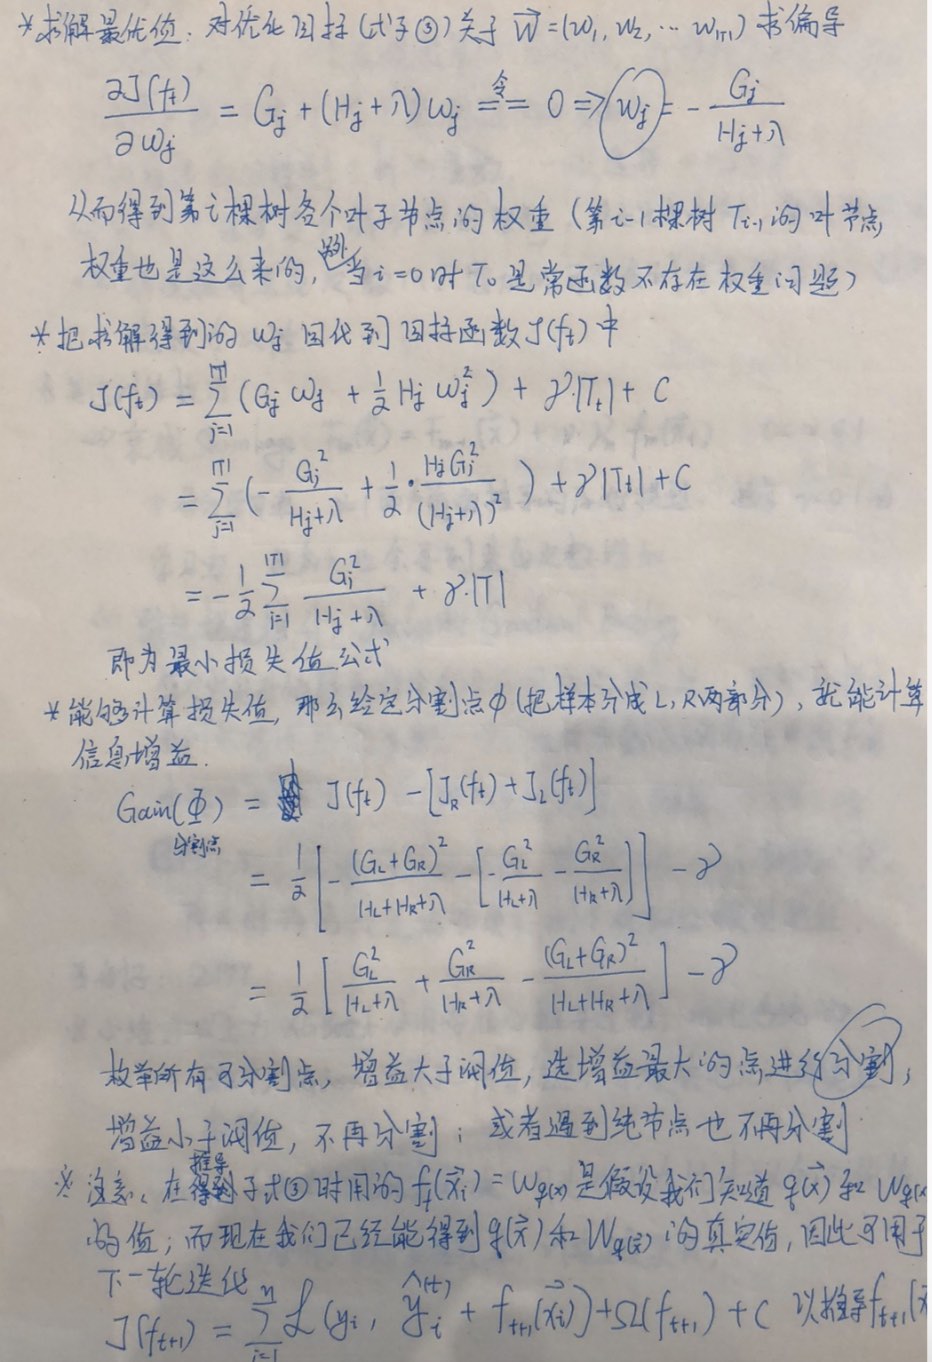 *求解最优值:对优化目标(式子③)关于 w⃗=(w₁, w₂, … w|T|) 求偏导
∂J(fₜ)/∂wⱼ = Gⱼ + (Hⱼ+λ)wⱼ 令== 0 ⇒ wⱼ = - Gⱼ/(Hⱼ+λ)
从而得到第i棵树各个叶子节点的权重(第i-1棵树Tᵢ₋₁的叶节点
权重也是这么来的, 当i=0时T₀是常函数不存在权重问题)
*把求解得到的wⱼ回代到目标函数J(fₜ)中
J(fₜ) = Σⱼ₌₁^|T| (Gⱼwⱼ + 1/2 Hⱼwⱼ²) + γ·|Tₜ| + C
= Σⱼ₌₁^|T| (- Gⱼ²/(Hⱼ+λ) + 1/2 · HⱼGⱼ²/(Hⱼ+λ)²) + γ|Tₜ| + C
= - 1/2 Σᵢ₌₁^|T| Gᵢ²/(Hⱼ+λ) + γ·|T|
即为最小损失值公式
*能够计算损失值,那么给定分割点φ(把样本分成L,R两部分),就能计算
信息增益.
Gain(Φ) = J(fₜ) - [J_R(fₜ) + J_L(fₜ)]
分割点
= 1/2 [- (G_L+G_R)²/(H_L+H_R+λ) - [- G_L²/(H_L+λ) - G_R²/(H_R+λ)]] - γ
= 1/2 [G_L²/(H_L+λ) + G_R²/(H_R+λ) - (G_L+G_R)²/(H_L+H_R+λ)] - γ
枚举所有可分割点,增益大于阈值,选增益最大的点进行分割,
增益小于阈值,不再分割;或者遇到纯节点也不再分割
※ 注意、在推导式③时用的fₜ(x⃗ᵢ)=w_q(x)是假设我们知道q(x⃗)和w_q(x
的值;而现在我们已经能得到q(x⃗)和w_q(x⃗)的真实值,因此可用于
下一轮迭代
J(fₜ₊₁) = Σᵢ₌₁ⁿ ℒ(yᵢ, ŷᵢ^(t) + fₜ₊₁(x⃗ᵢ)) + Ω(fₜ₊₁) + C 以推导fₜ₊₁(x